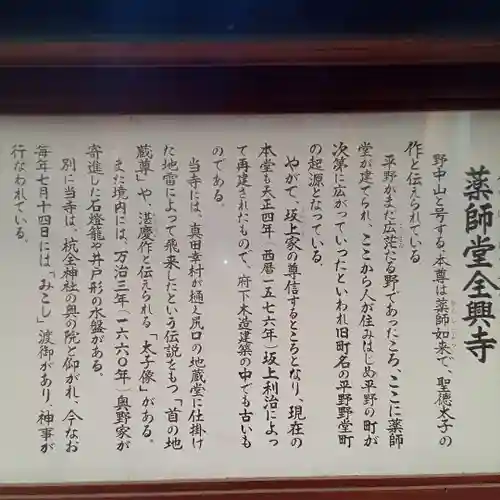 薬師堂全興寺
野中山と号する。本尊は薬師如来で、聖徳太子の
作と伝えられている
平野がまだ広茫たる野であったころ、ここに薬師
堂が建てられ、ここから人が住みはじめ平野の町が
次第に広がっていったといわれ旧町名の平野野堂町
の起源となっている。
やがて、坂上家の尊信するところとなり、現在の
本堂も天正四年（西暦一五七六年）坂上利治によっ
て再建されたもので、府下木造建築の中でも古いも
のである。
当寺には、真田幸村が樋え尻口の地蔵堂に仕掛け
た地雷によって飛来したという伝説をもつ「首の地
蔵尊」や、湛慶作と伝えられる「太子像」がある。
また境内には、万治三年（一六六〇年）奥野家が
寄進した石燈籠や井戸形の水盤がある。
別に当寺は、杭全神社の奥の院と仰がれ、今なお
毎年七月十四日には「みこし」渡御があり、神事が
行なわれている。